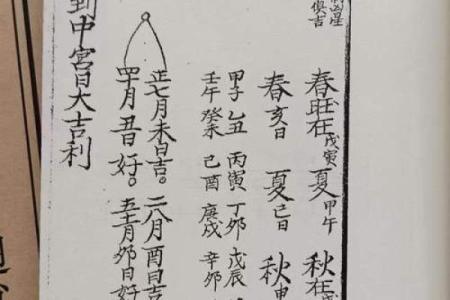 凶星
俱吉
春旺在戊寅夏甲午秋在
春亥日夏巳日秋
甲子乙丑丙寅丁卯戊辰
壬午癸未己酉庚戌辛卯
正七月未日吉。二八月酉日吉
四十月丑日好。五十一月卯日好
到中宮日大吉利